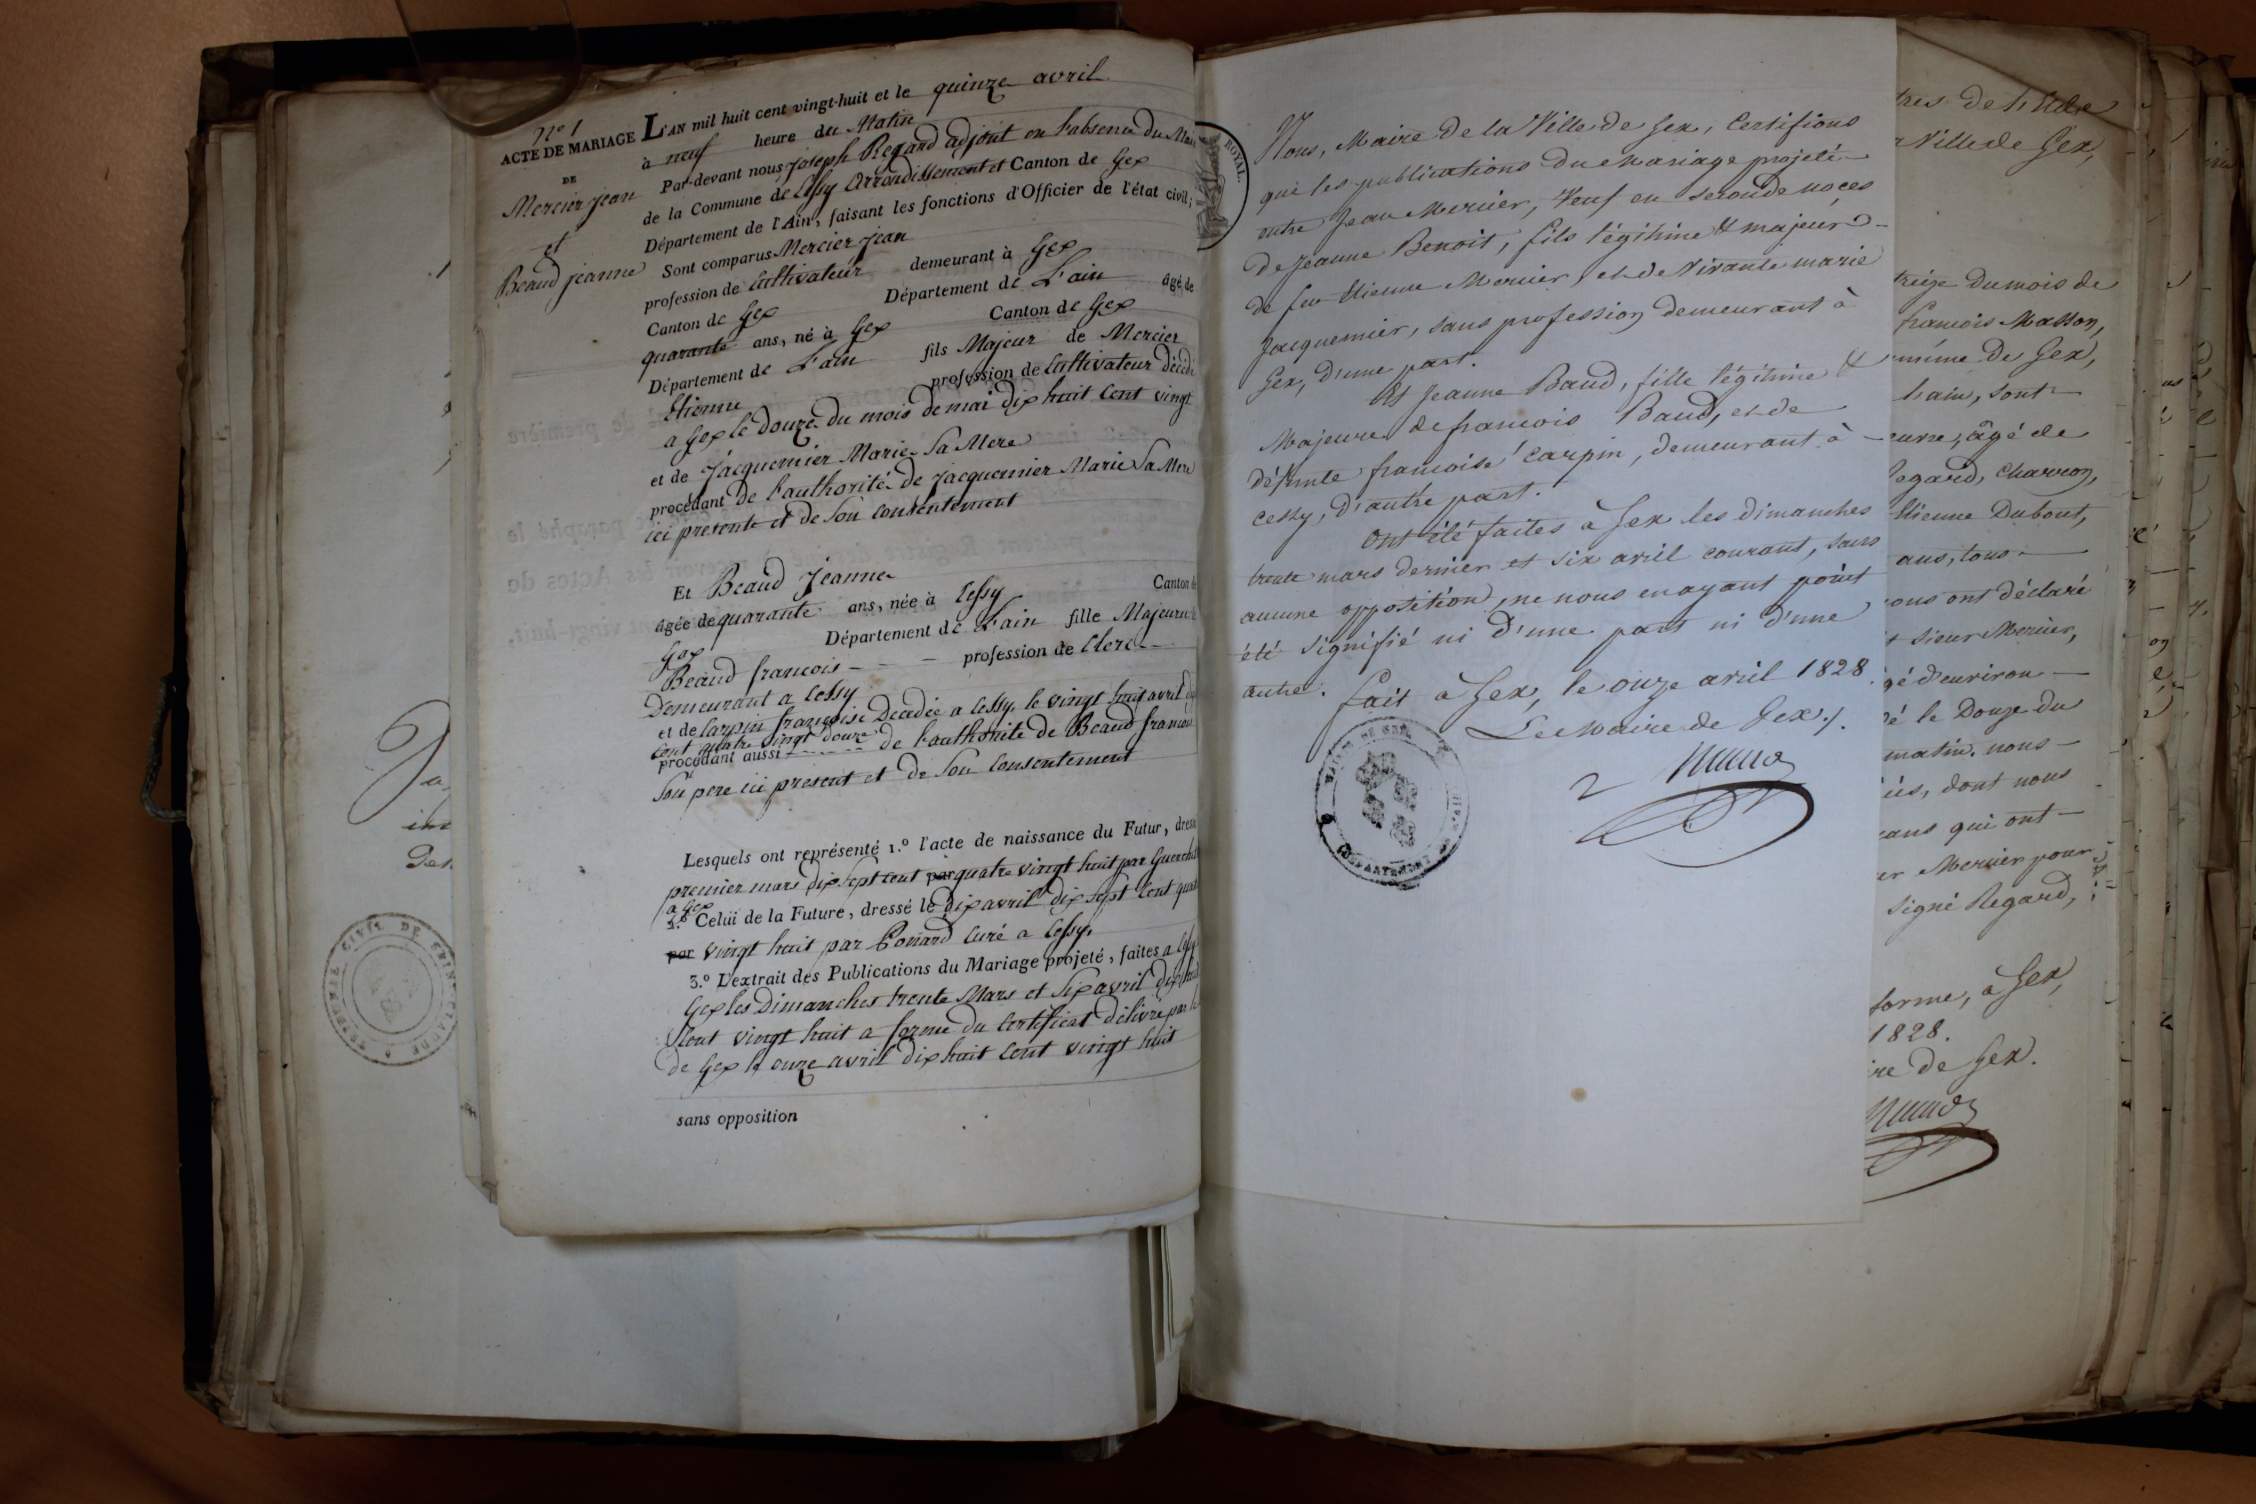 N° 1
ACTE DE MARIAGE
DE
Mercier jean
et
Beaud jeanne
L'AN mil huit cent vingt-huit et le quinze avril
à neuf heure du Matin
Par-devant nous joseph Regard adjoint en l'absence du Maire
de la Commune de Cessy Arrondissement et Canton de Gex
Département de l'Ain, faisant les fonctions d'Officier de l'état civil;
Sont comparus Mercier jean
profession de Cultivateur demeurant à Gex
Canton de Gex Département de L'ain âgé de
quarante ans, né à Gex Canton de Gex
Département de L'ain fils Majeur de Mercier
Etienne profession de Cultivateur décédé
a Gex le douze du mois de mai dix huit cent vingt
et de Jacquemier Marie Sa Mere
procédant de l'authorité de jacquemier Marie Sa Mere
ici presente et de Son consentement
Et Beaud Jeanne
âgée de quarante ans, née à Cessy Canton de
Gex Département de L'ain fille Majeure
Beaud francois profession de Clerc
Demeurant a Cessy
et de Carpin françoise Décédée a Cessy, le vingt huit avril
cent quatre vingt douze
procédant aussi de l'authorité de Beaud francois
Son pere ici présent et de Son Consentement
Lesquels ont représenté 1.° l'acte de naissance du Futur, dressé
premier mars dix sept cent par quatre vingt huit par
a Gex
2.° Celui de la Future, dressé le dix avril dix sept Cent quatre
par vingt huit par Ponard Curé a Cessy,
3.° L'extrait des Publications du Mariage projeté, faites a Cessy
Gex les Dimanches trente Mars et Six avril dix huit
Cent vingt huit a forme du Certificat délivré par le
de Gex le onze avril dix huit Cent vingt huit
sans opposition
ROYAL.
Nous, Maire de la Ville de Gex, Certifions
que les publications du Mariage projeté
entre Jean Mercier, Veuf en seconde noces
de Jeanne Benoit, fils légitime & majeur
de feu Etienne Mercier, et de Vivante marie
Jacquemier, sans profession demeurant à
Gex, d'une part.
Et Jeanne Baud, fille légitime &
Majeure de francois Baud, et de
défunte francoise Carpin, demeurant à
Cessy, d'autre part.
Ont été faites à Gex les dimanches
trente mars dernier et six avril courant, sans
aucune opposition, ne nous en ayant point
été Signifié ni d'une part ni d'une
autre. fait à Gex, le onze avril 1828.
Le Maire de Gex.
Ville de Gex,
treize du mois de
francois Masson,
de Gex,
sont
âgé de
Regard, charron,
Etienne Dubout,
ans, tous
ont déclaré
sieur Mercier,
d'environ
le Douze du
matin. nous
dont nous
qui ont
Mercier pour
signé Regard,
forme, à Gex,
1828.
de Gex.